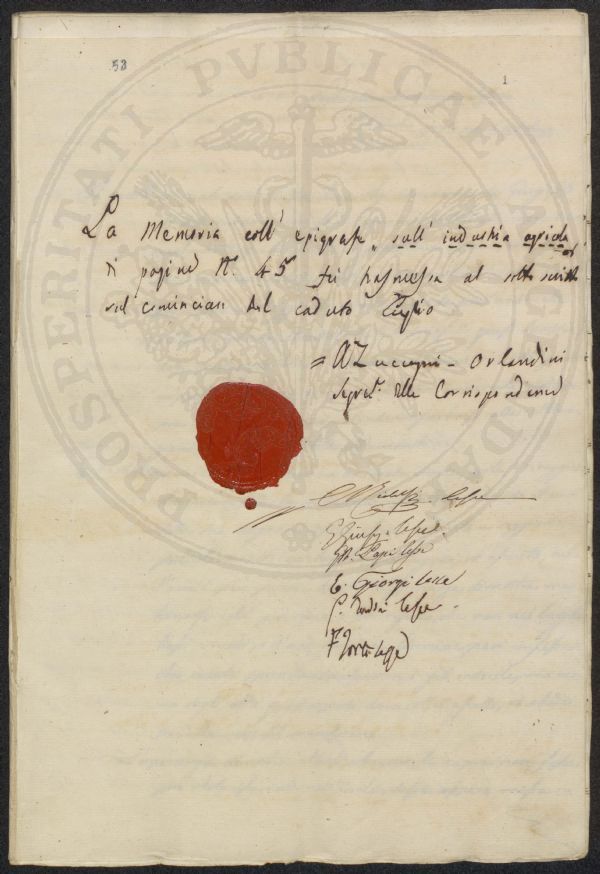 58
1
PROSPERITATI PVBLICAE AVGENDAE
La Memoria coll' epigrafe „ sull' industria agricola
di pagine N.° 45 fu trasmessa al sottoscritto
sul cominciar del caduto Luglio
= A Zuccagni - Orlandini
Segret.° della Corrispondenza
lesse
lesse
Papi lesse
E. Giorgi lesse
lesse
lesse